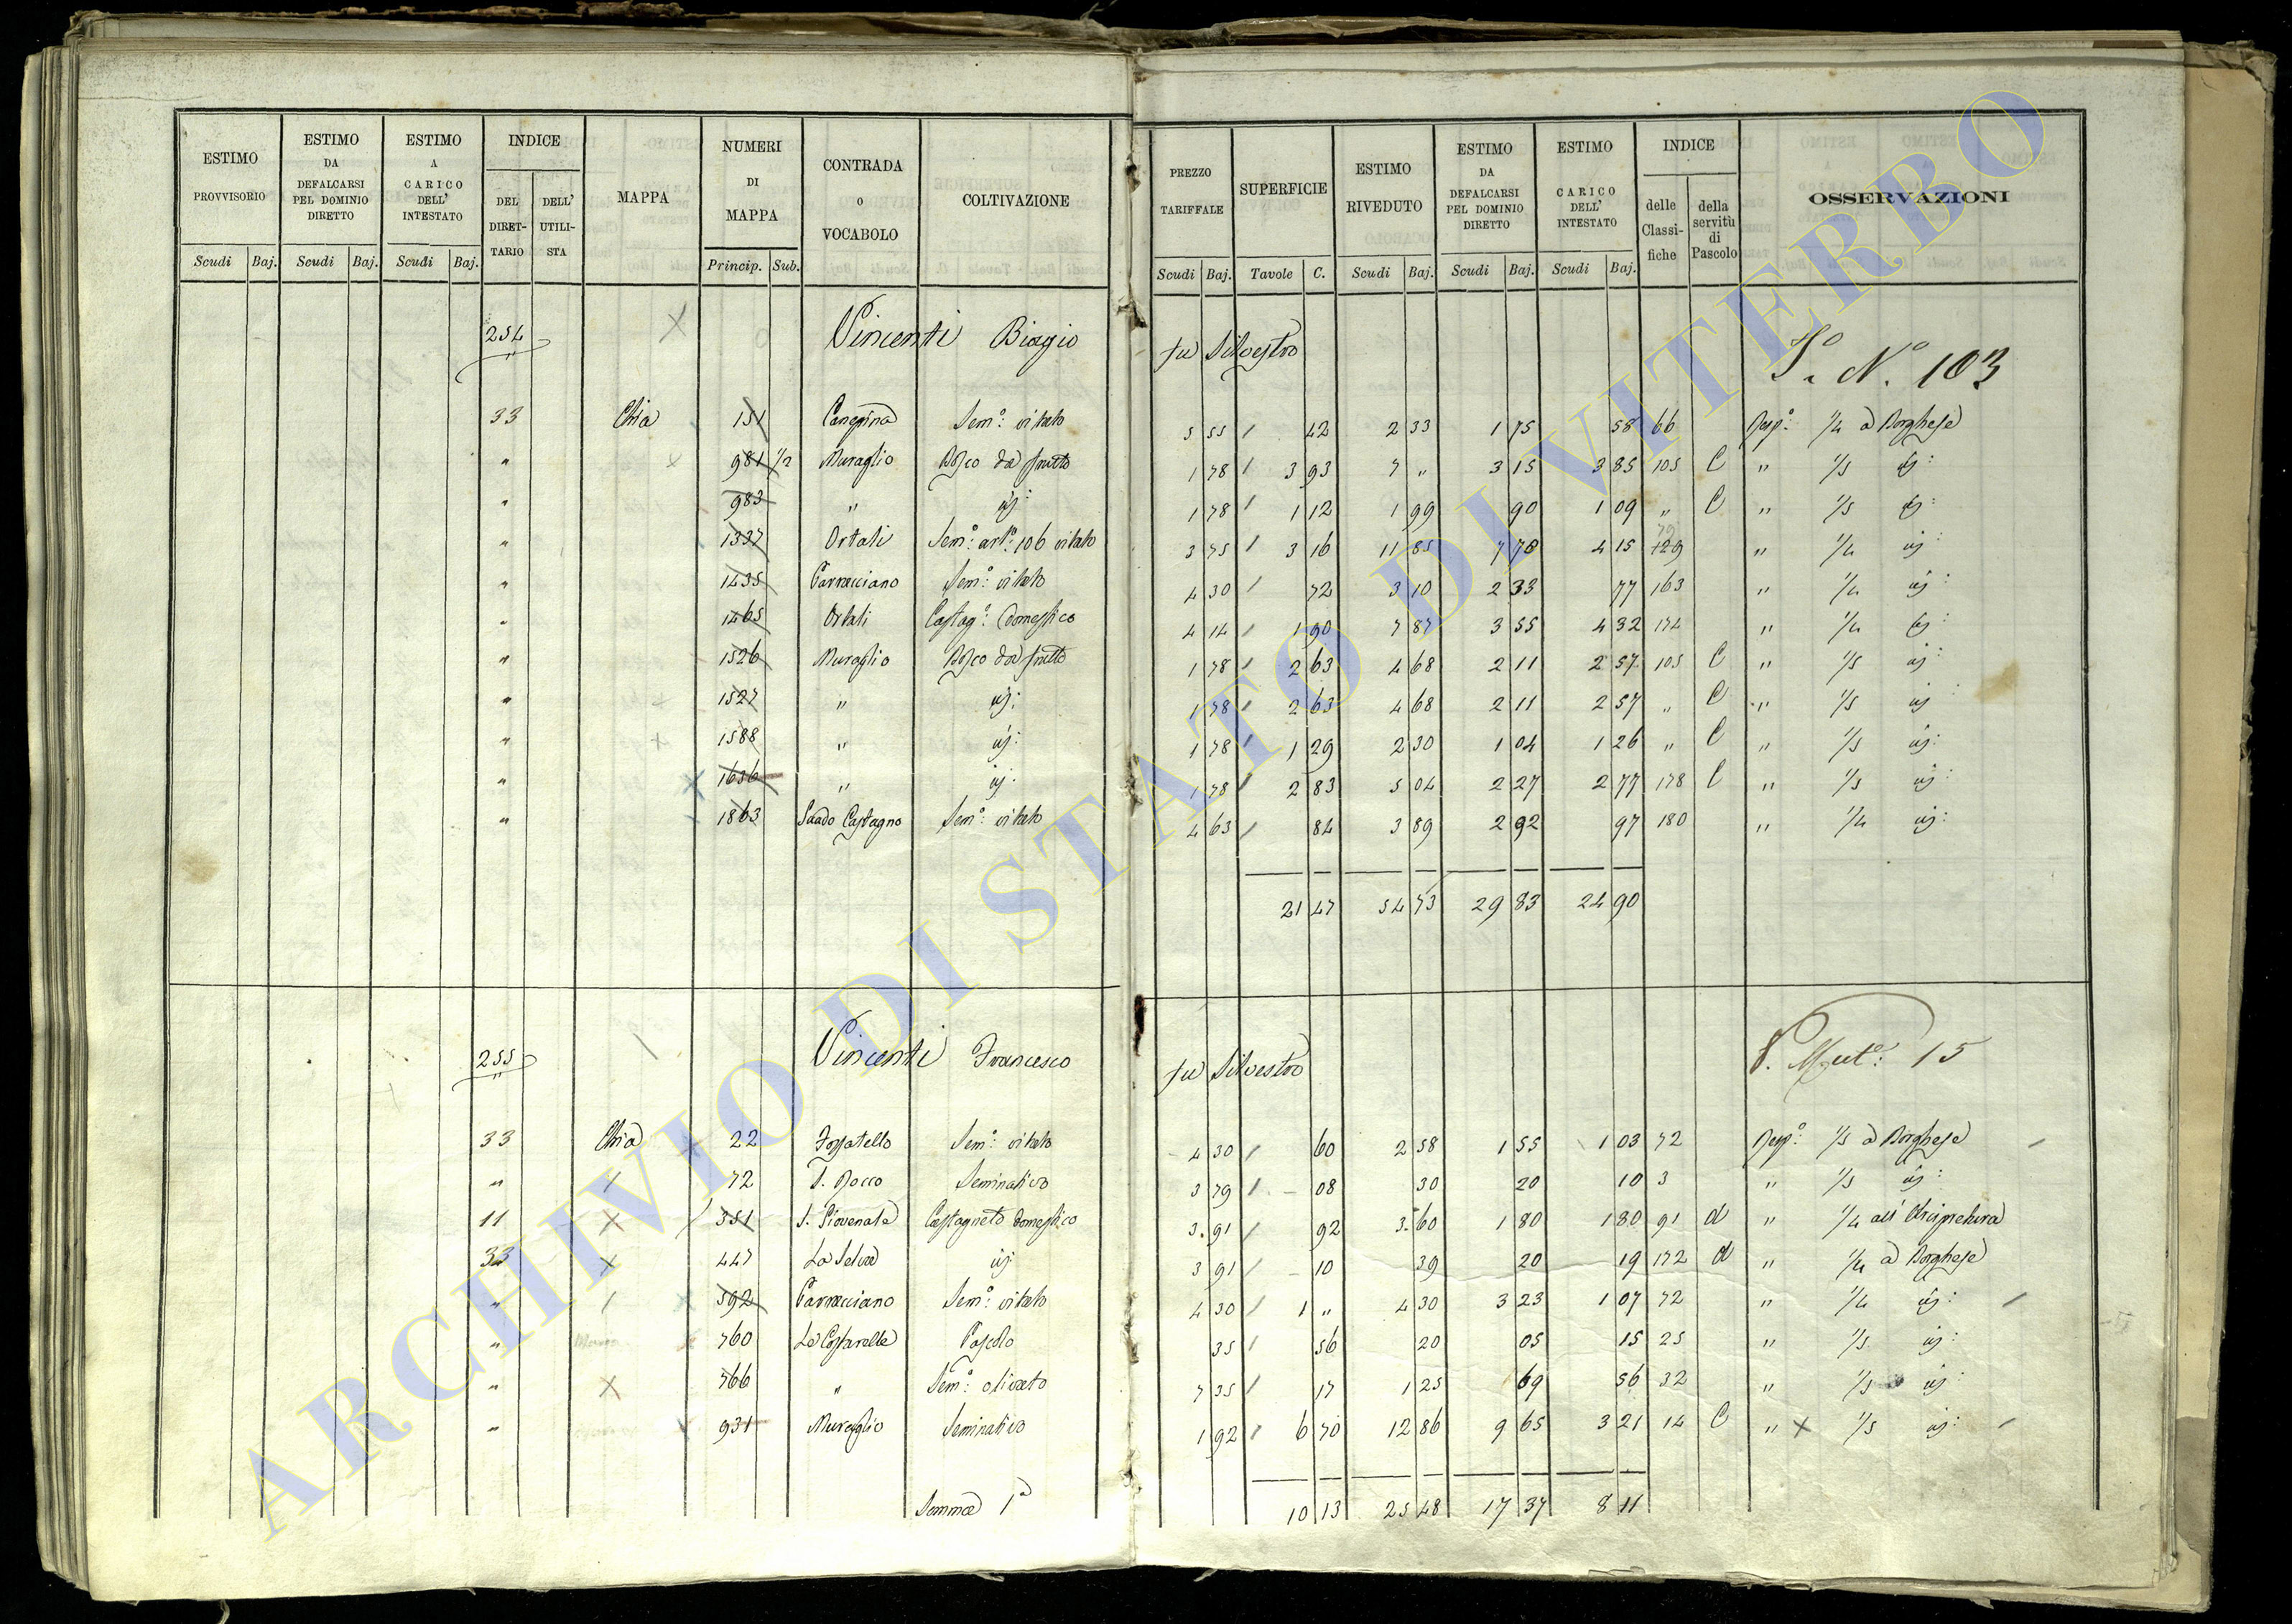 ESTIMO PROVVISORIO Scudi Baj. ESTIMO DA DEFALCARSI PEL DOMINIO DIRETTO Scudi Baj. ESTIMO A CARICO DELL' INTESTATO Scudi Baj. INDICE DEL DIRETTARIO DELL' UTILISTA MAPPA NUMERI DI MAPPA Princip. Sub. CONTRADA O VOCABOLO COLTIVAZIONE PREZZO TARIFFALE Scudi Baj. SUPERFICIE Tavole C. ESTIMO RIVEDUTO Scudi Baj. ESTIMO DA DEFALCARSI PEL DOMINIO DIRETTO Scudi Baj. ESTIMO A CARICO DELL' INTESTATO Scudi Baj. INDICE delle Classifiche della servitù di Pascolo OSSERVAZIONI
254 Vincenti Biagio fu Silvestro
S. N.º 103
33 Chia 151 Canepina Sem.º vitato 5 55 / 42 2 33 1 75 58 66 Risp.º 1/4 a Borghese
" 981 1/2 Muraglio Bosco da frutto 1 78 / 3 93 7 " 3 15 3 85 105 C " 1/5 id:
" 983 " id: 1 78 / 1 12 1 99 90 1 09 " C " 1/5 id:
" 1337 Ortali Sem.º art.º 106 vitato 3 75 / 3 16 11 85 7 70 4 15 129 79 " 1/4 id:
" 1435 Parracciano Sem.º vitato 4 30 / 72 3 10 2 33 77 163 " 1/4 id:
" 1465 Ortali Castag.º Domestico 4 14 / 1 90 7 87 3 55 4 32 174 " 1/4 id:
" 1526 Muraglio Bosco da frutto 1 78 / 2 63 4 68 2 11 2 57 105 C " 1/5 id:
" 1527 " id: 1 78 / 2 63 4 68 2 11 2 57 " C " 1/5 id:
" 1588 " id: 1 78 / 1 29 2 30 1 04 1 26 " C " 1/5 id:
" 1656 " id: 1 78 / 2 83 5 04 2 27 2 77 178 C " 1/5 id:
" 1863 Castagno Sem.º vitato 4 63 / 84 3 89 2 92 97 180 " 1/4 id:
21 47 54 73 29 83 24 90
255 Vincenti Francesco fu Silvestro
15
33 Chia 22 Fossatello Sem.º vitato 4 30 / 60 2 58 1 55 1 03 72 Risp.º 1/5 a Borghese
" 72 S. Rocco Seminativo 3 79 / 08 30 20 10 3 " 1/5 id:
11 351 S. Giovenale Castagneto domestico 3.91 / 92 3.60 1 80 1 80 91 d " 1/4 all'Arcipretura
33 447 La Selva id 3 91 / 10 39 20 19 172 d " 1/4 a Borghese
" 592 Parracciano Sem.º vitato 4 30 / 1 " 4 30 3 23 1 07 72 " 1/4 id:
" 760 Le Costarelle Pascolo 35 / 56 20 05 15 25 " 1/5 id:
" 766 " Sem.º olivato 7 35 / 17 1 25 69 56 32 " 1/5 id:
" 931 Muraglio Seminativo 1 92 / 6 70 12 86 9 65 3 21 14 C " 1/5 id:
Somma 1ª 10 13 25 48 17 37 8 11
ARCHIVIO DI STATO DI VITERBO